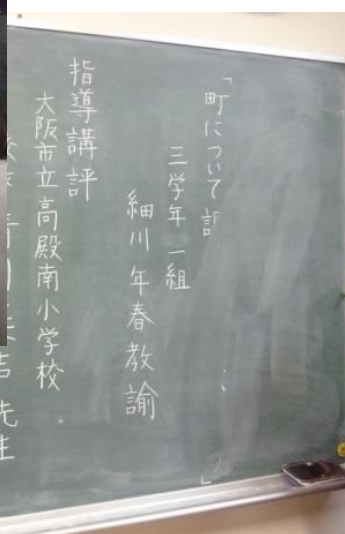 「町について訁
三学年一組
細川年春教諭
指導講評
大阪市立高殿南小学校
先生